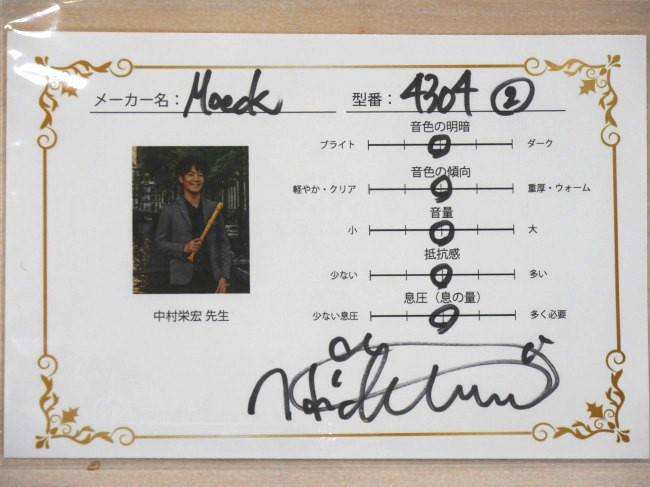 メーカー名：Moeck 型番：4304 ②
音色の明暗
ブライト ダーク
音色の傾向
軽やか・クリア 重厚・ウォーム
音量
小 大
抵抗感
少ない 多い
息圧（息の量）
少ない息圧 多く必要
中村栄宏 先生